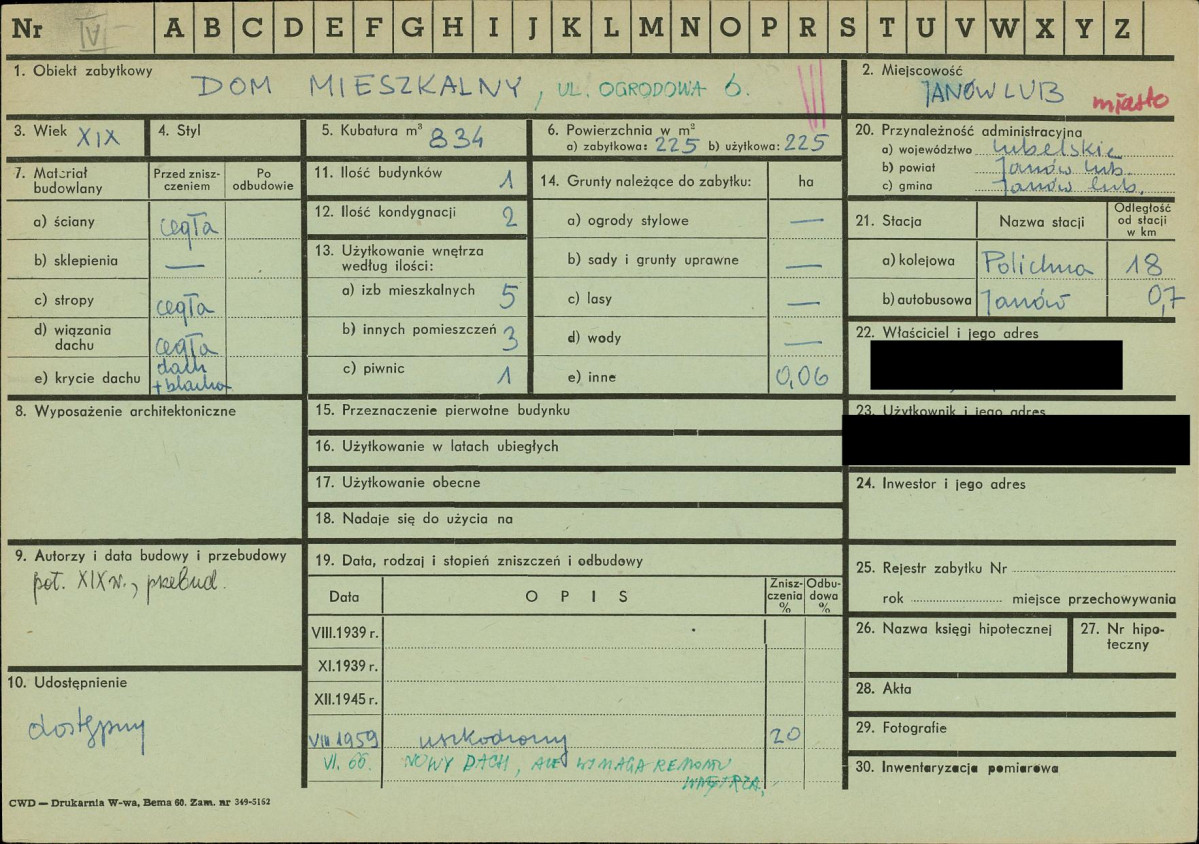 Nr IV A B C D E F G H I J K L M N O P R S T U V W X Y Z
1. Obiekt zabytkowy DOM MIESZKALNY, UL. OGRODOWA 6.
2. Miejscowość JANÓW LUB miasto
3. Wiek XIX
4. Styl
5. Kubatura m³ 834
6. Powierzchnia w m²
a) zabytkowa: 225 b) użytkowa: 225
20. Przynależność administracyjna
a) województwo lubelskie
b) powiat Janów lub.
c) gmina Janów lub.
7. Materiał budowlany
Przed zniszczeniem
Po odbudowie
a) ściany cegła
b) sklepienia —
c) stropy cegła
d) wiązania dachu cegła
e) krycie dachu dach + blacha
11. Ilość budynków 1
12. Ilość kondygnacji 2
13. Użytkowanie wnętrza według ilości:
a) izb mieszkalnych 5
b) innych pomieszczeń 3
c) piwnic 1
14. Grunty należące do zabytku: ha
a) ogrody stylowe —
b) sady i grunty uprawne —
c) lasy —
d) wody —
e) inne 0,06
21. Stacja Nazwa stacji Odległość od stacji w km
a) kolejowa Polichna 18
b) autobusowa Janów 0,7
22. Właściciel i jego adres
23. Użytkownik i jego adres
8. Wyposażenie architektoniczne
15. Przeznaczenie pierwotne budynku
16. Użytkowanie w latach ubiegłych
17. Użytkowanie obecne
18. Nadaje się do użycia na
24. Inwestor i jego adres
9. Autorzy i data budowy i przebudowy
poł. XIX w., przebud.
19. Data, rodzaj i stopień zniszczeń i odbudowy
Data OPIS Zniszczenia % Odbudowa %
VIII.1939 r.
XI.1939 r.
XII.1945 r.
VIII 1959 uszkodzony 20
VI. 66. NOWY DACH, ALE WYMAGA REMONTU
WNĘTRZA.
25. Rejestr zabytku Nr
rok miejsce przechowywania
26. Nazwa księgi hipotecznej
27. Nr hipoteczny
28. Akta
29. Fotografie
30. Inwentaryzacja pomiarowa
10. Udostępnienie
dostępny
CWD — Drukarnia W-wa, Bema 60. Zam. nr 349-5162